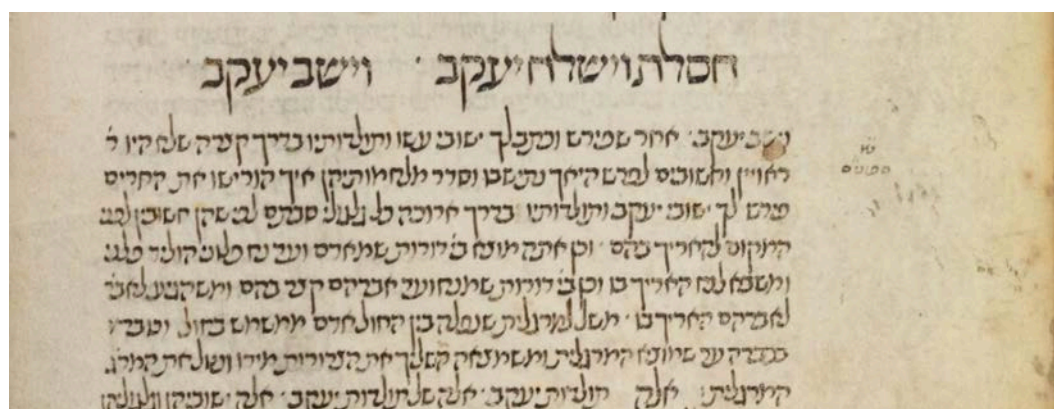 חסלת וישלח יעקב · וישב יעקב
וישב יעקב · אחר שפירש וכתב לך ישובי עשו ותולדותיו בדרך קצרה שלא היו
ראויין וחשובים לפרש היאך נתישבו וסדר מלחמותיהן איך הורישו את החרים
פירש לך ישובי יעקב ותולדותיו בדרך ארוכה כל גלגולי סבתם לפי שהן חשובין לפני
המקום להאריך בהם · וכן אתה מוצא בי׳ דורות שמאדם ועד נח פלוני הוליד פלוני
ומשבא לנח האריך בו וכן בי׳ דורות שמנח ועד אברהם קצר בהם ומשהגיע לאבר
לאברהם האריך בו · משל למרגלית שנפלה בין החול אדם ממשמש בחול וכוברו
בכברה עד שמוצא המרגלית ומשמוצאה משליך את הצרורות מידו ונוטל את המרג
המרגלית · אלה תולדות יעקב · אלה של תולדות יעקב · אלה ישוביהן וגלגוליהן